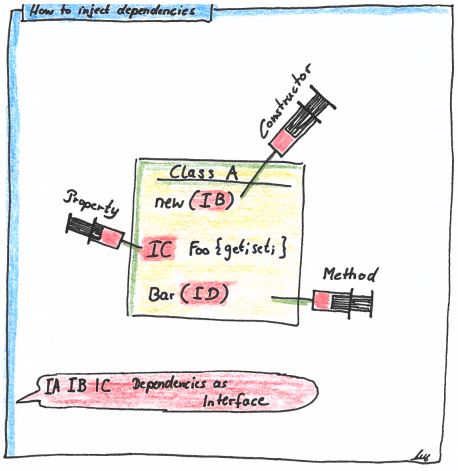 How to inject dependencies
Constructor
Class A
new (IB)
Property
IC Foo {get;set;}
Method
Bar (ID)
IA IB IC Dependencies as
Interface